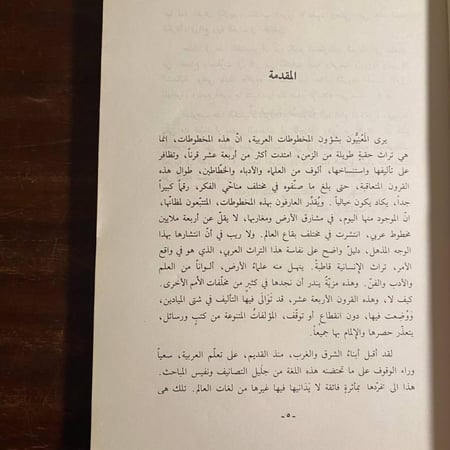 المقدمة
يرى المَعْنِيُّون بشؤون المخطوطات العربية، انّ هذه المخطوطات، انما
هي تراث حقبةٍ طويلة من الزمن، امتدت أكثر من أربعة عشر قرناً، وتظافر
على تأليفها واستنساخها، ألوف من العلماء والأدباء والخطّاطين، طوال هذه
القرون المتعاقبة، حتى بلغ ما صنّفوه في مختلف مناحي الفكر، رقماً كبيراً
جداً، يكاد يكون خيالياً. ويُقدِّر العارفون بهذه المخطوطات، المتتبّعون لمظانّها،
انّ الموجود منها اليوم، في مشارق الأرض ومغاربها، لا يقلّ عن أربعة ملايين
مخطوط عربي، انتشرت في مختلف بقاع العالم. ولا ريب في أنّ انتشارها بهذا
الوجه المذهل، دليلٌ واضح على نفاسة هذا التراث العربي، الذي هو في واقع
الأمر، تراث الإنسانية قاطبةً. ينهل منه علماءُ الأرض، ألواناً من العلم
والأدب والفنّ. وهذه مزيّةٌ يندر أن نجدها في كثيرٍ من مخلّفات الأمم الأخرى.
كيف لا، وهذه القرون الأربعة عشر، قد تَوَالَى فيها التأليف في شتى الميادين،
ووُضِعت فيها، دون انقطاعٍ أو توقّف، المؤلفاتُ المتنوعة من كتبٍ ورسائل،
يتعذّر حصرها والإلمام بها جميعاً.
لقد أقبل أبناءُ الشرق والغرب، منذ القديم، على تعلّم العربية، سعياً
وراء الوقوف على ما تحتضنه هذه اللغة من جليل التصانيف ونفيس المباحث.
هذا الى تفرّدها بمأثرةٍ فائقة لا يُدَانيها فيها غيرها من لغات العالم. تلك هي
-٥-